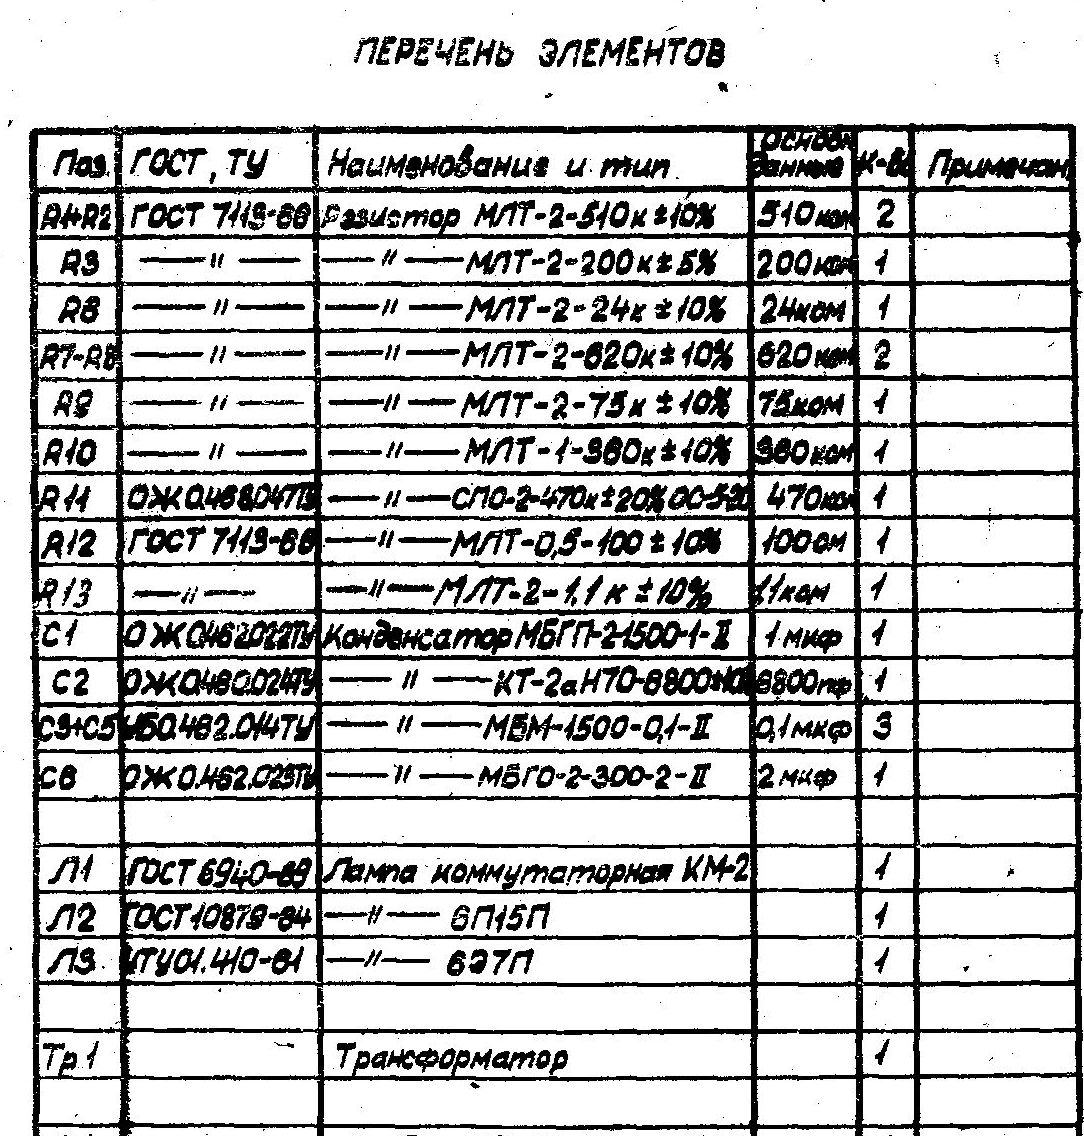 ПЕРЕЧЕНЬ ЭЛЕМЕНТОВ
Поз. ГОСТ, ТУ Наименование и тип Основн данные К-во Примечан
R1÷R2 ГОСТ 7113-66 Резистор МЛТ-2-510к±10% 510ком 2
R3 —〃— —〃— МЛТ-2-200к±5% 200ком 1
R6 —〃— —〃— МЛТ-2-24к±10% 24ком 1
R7-R8 —〃— —〃— МЛТ-2-620к±10% 620ком 2
R9 —〃— —〃— МЛТ-2-75к±10% 75ком 1
R10 —〃— —〃— МЛТ-1-360к±10% 360ком 1
R11 ОЖ0.468.047ТУ —〃— СПО-2-470к±20% ОС-5-20 470ком 1
R12 ГОСТ 7113-66 —〃— МЛТ-0,5-100±10% 100ом 1
R13 —〃— —〃— МЛТ-2-1,1к±10% 1,1ком 1
С1 ОЖ0.462.022ТУ Конденсатор МБГП-2-1500-1-II 1мкф 1
С2 ОЖ0.460.024ТУ —〃— КТ-2аН70-6800 6800пф 1
С3÷С5 УБ0.462.014ТУ —〃— МБМ-1500-0,1-II 0,1мкф 3
С6 ОЖ0.462.023ТУ —〃— МБГО-2-300-2-II 2мкф 1
Л1 ГОСТ 6940-69 Лампа коммутаторная КМ-2 1
Л2 ГОСТ 10879-64 —〃— 6П15П 1
Л3 ЧТУ01.410-61 —〃— 6Э7П 1
Тр1 Трансформатор 1